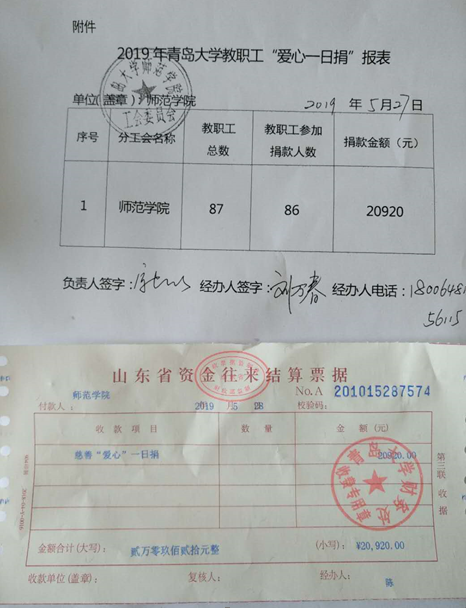 附件
2019年青岛大学教职工“爱心一日捐”报表
单位(盖章):师范学院 2019 年5月27日
青岛大学师范学院
工会委员会
序号 分工会名称 教职工总数 教职工参加捐款人数 捐款金额（元）
1 师范学院 87 86 20920
负责人签字: 经办人签字:刘万春 经办人电话:18006481
56115
山东省资金往来结算票据
师范学院 No.A 201015287574
付款人： 2019 年5 28 校验码：
收款项目 数量 金额(元)
慈善“爱心”一日捐 20920.00
青岛大学财务处
第三联 收据
金额合计(大写)： 贰万零玖佰贰拾元整 (小写)： ¥20,920.00
收款单位(盖章)： 复核人： 经办人： 陈